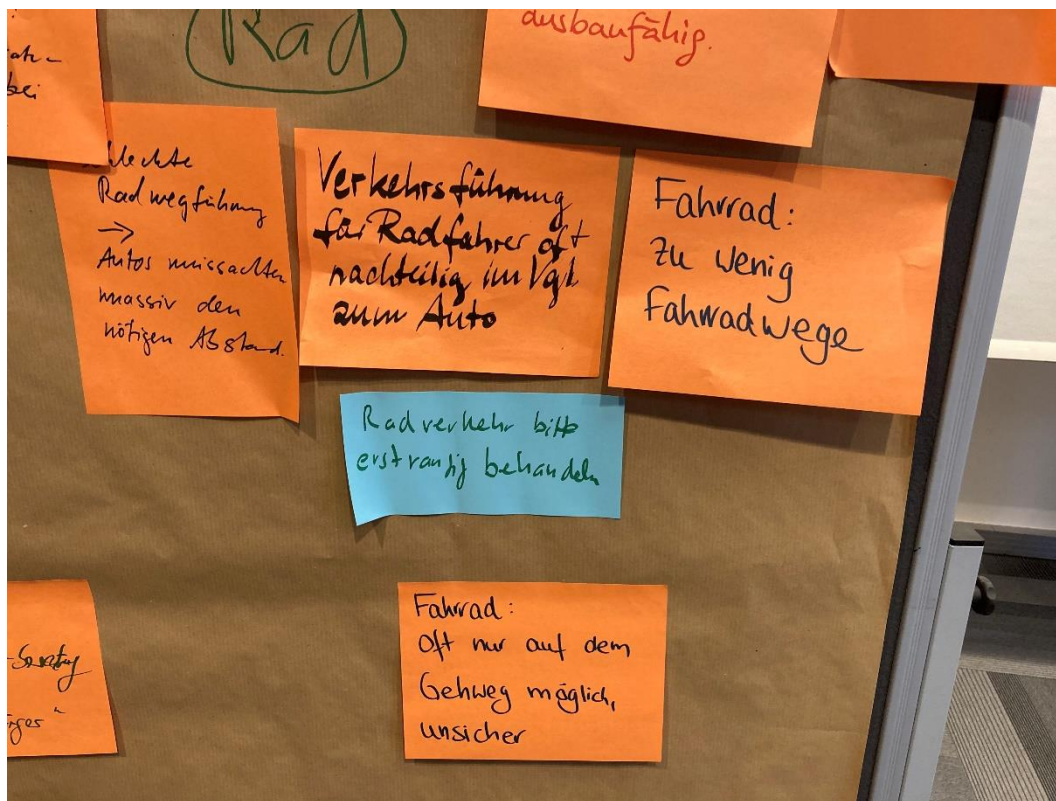 Rad
ausbaufähig.
bei
schlechte
Radwegführung
→
Autos missachten
massiv den
nötigen Abstand.
Verkehrsführung
für Radfahrer oft
nachteilig im Vgl
zum Auto
Fahrrad:
zu wenig
Fahrradwege
Radverkehr bitte
erstrangig behandeln
Fahrrad:
Oft nur auf dem
Gehweg möglich,
unsicher